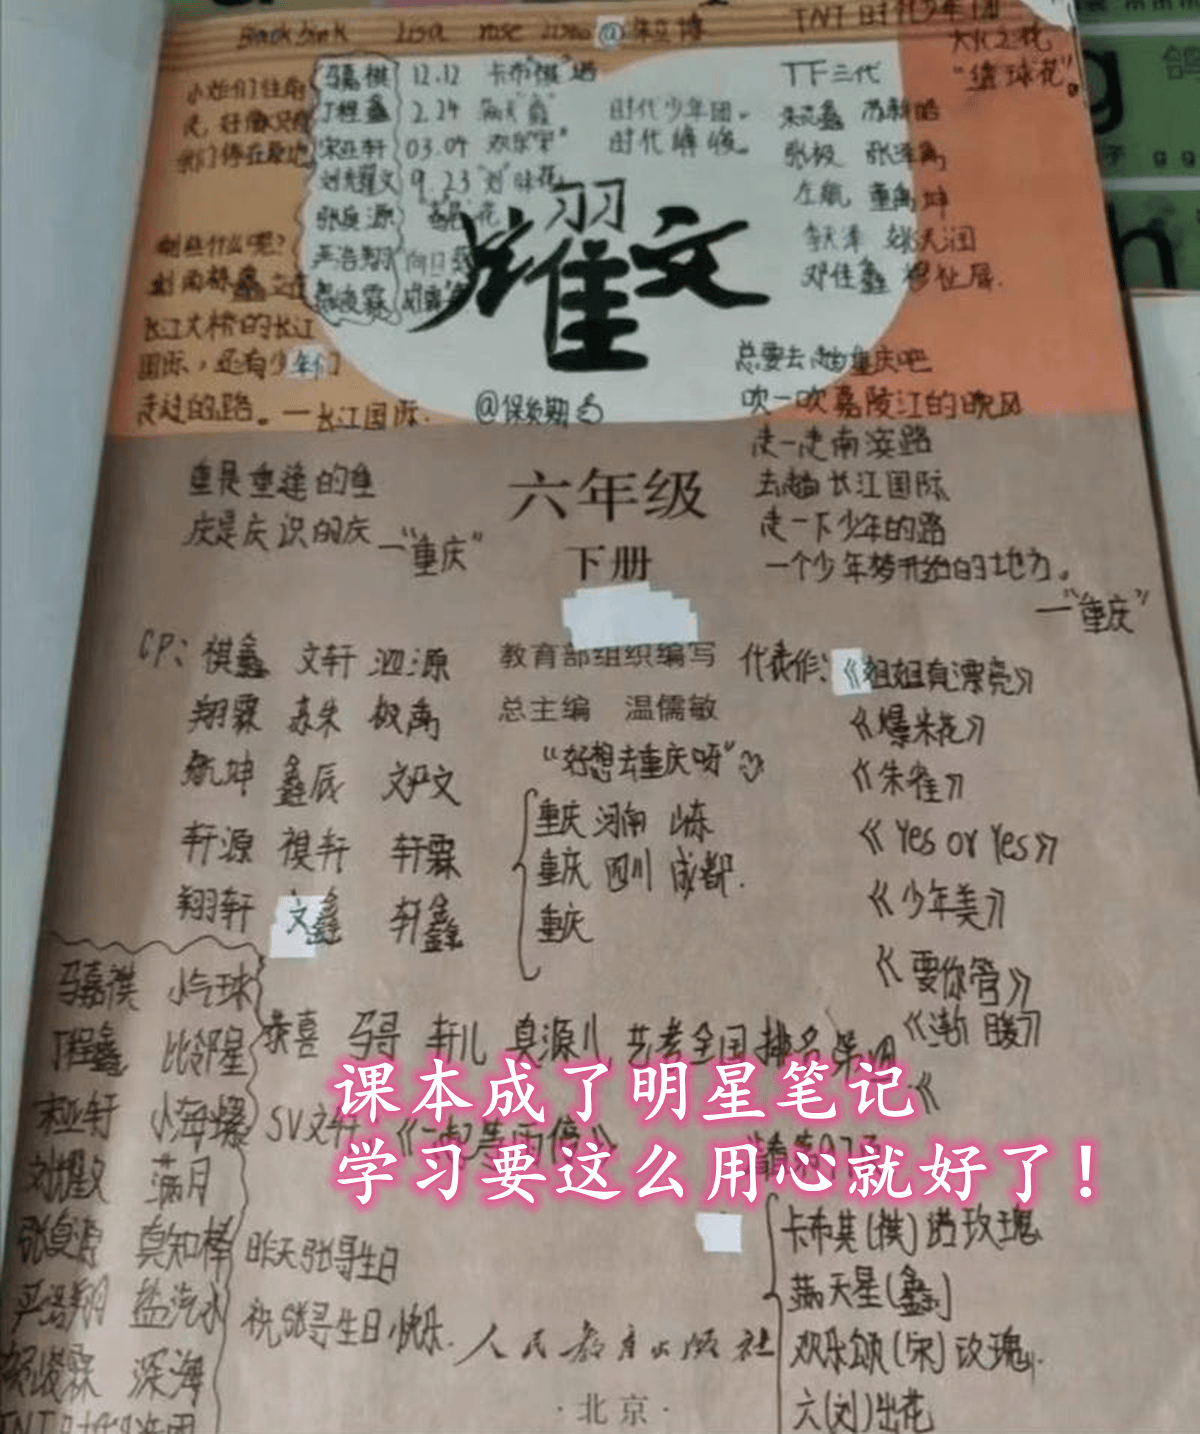 Black pink Lisa rose @朱立博
TNT时代少年团
大火之花
"篮球花"。
马嘉祺 12.12 卡布"祺"诺
丁程鑫 2.24 满天"鑫"
宋亚轩 03.04 欢乐"宋"
刘耀文 9.23 "刘"
张真源 花
严浩翔 向日葵
贺峻霖
时代少年团。
时代峰峻。
TF三代
朱志鑫 苏新皓
张极 张泽禹
左航 童禹坤
余宇涵 姚昱辰
邓佳鑫 穆祉丞
我们停在原地
什么呢?
长江大桥的长江
国际,还有少年们
走过的路。一长江国际.
耀文
总要去趟重庆吧
吹一吹嘉陵江的晚风
走一走南滨路
去趟长江国际
走一下少年的路
一个少年梦开始的地方。
一"重庆"
重是重逢的重
庆是庆识的庆
一"重庆"
六年级
下册
教育部组织编写
总主编 温儒敏
CP: 祺鑫 文轩 泗源
翔霖 苏朱 极禹
航坤 鑫辰 文严文
轩源 祺轩 轩霖
翔轩 文鑫 轩鑫
代表作:《姐姐真漂亮》
《爆米花》
《朱雀》
《Yes or Yes》
《少年美》
《要你管》
《渐暖》
"好想去重庆呀"
重庆 河南 山东
重庆 四川 成都.
重庆
马嘉祺 小气球
丁程鑫 比邻星
宋亚轩 小海螺
刘耀文 满月
张真源 真知棒
严浩翔 盐汽水
贺峻霖 深海
恭喜 马哥 轩儿 真源儿 艺考全国排名第
SV文轩《一起等雨停》
课本成了明星笔记
学习要这么用心就好了!
昨天张哥生日
祝张哥生日快乐.
卡布其(祺)诺玫瑰
满天星(鑫)
欢乐颂(宋)玫瑰.
六(刘)出花
人民教育出版社
·北京·